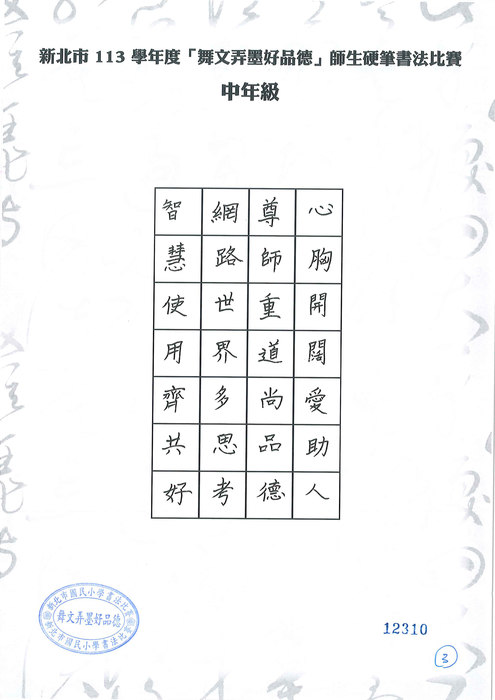 新北市 113 學年度「舞文弄墨好品德」師生硬筆書法比賽
中年級
心胸開闊愛助人
尊師重道尚品德
網路世界多思考
智慧使用齊共好
新北市國民小學書法比賽
舞文弄墨好品德
新北市國民小學書法比賽
12310
3